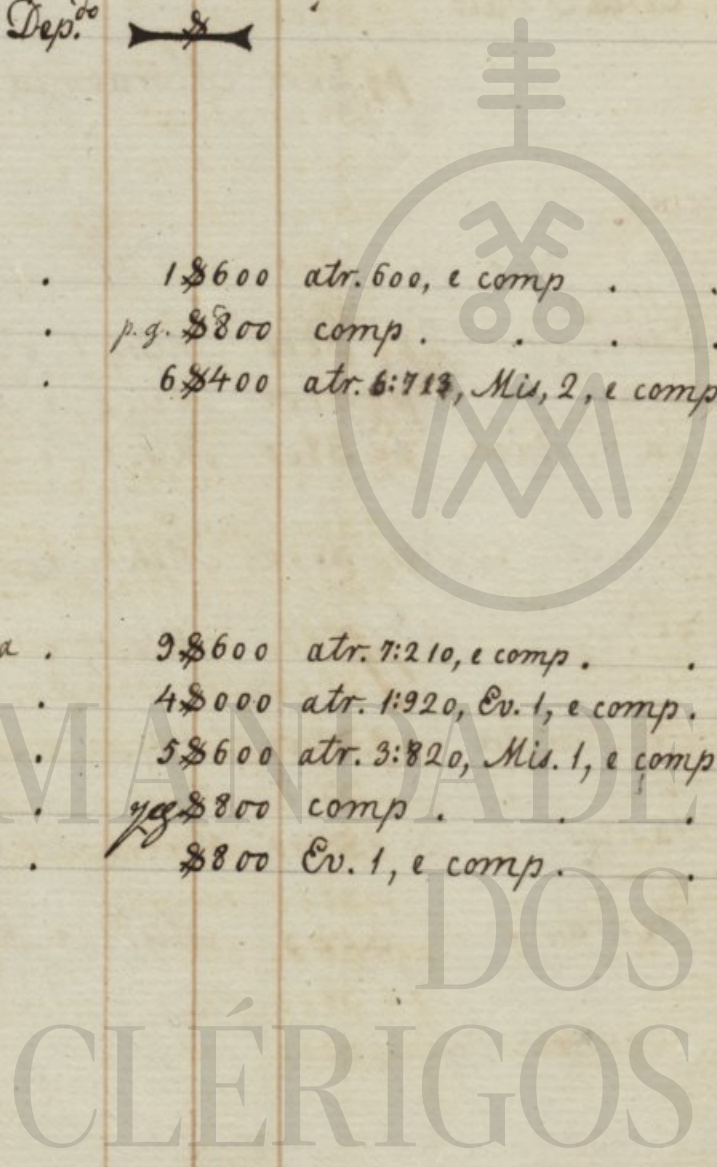 Dep.do $
. 1$600 atr. 600, e comp . .
. p.g. $800 comp . . . .
. 6$400 atr. 6:713, Mis, 2, e comp
a . 9$600 atr. 7:210, e comp . .
. 4$000 atr. 1:920, Ev. 1, e comp.
. 5$600 atr. 3:820, Mis. 1, e comp
. $800 comp . . .
. $800 Ev. 1, e comp . .
MANDADE
DOS
CLÉRIGOS